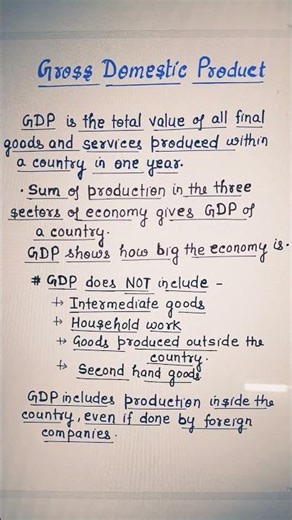 Gross Domestic Product
GDP is the total value of all final
goods and services produced within
a country in one year.
• Sum of production in the three
sectors of economy gives GDP of
a country.
GDP shows how big the economy is.
# GDP does NOT include -
→ Intermediate goods
→ Household work
→ Goods produced outside the
country.
→ Second hand goods
GDP includes production inside the
country, even if done by foreign
companies.